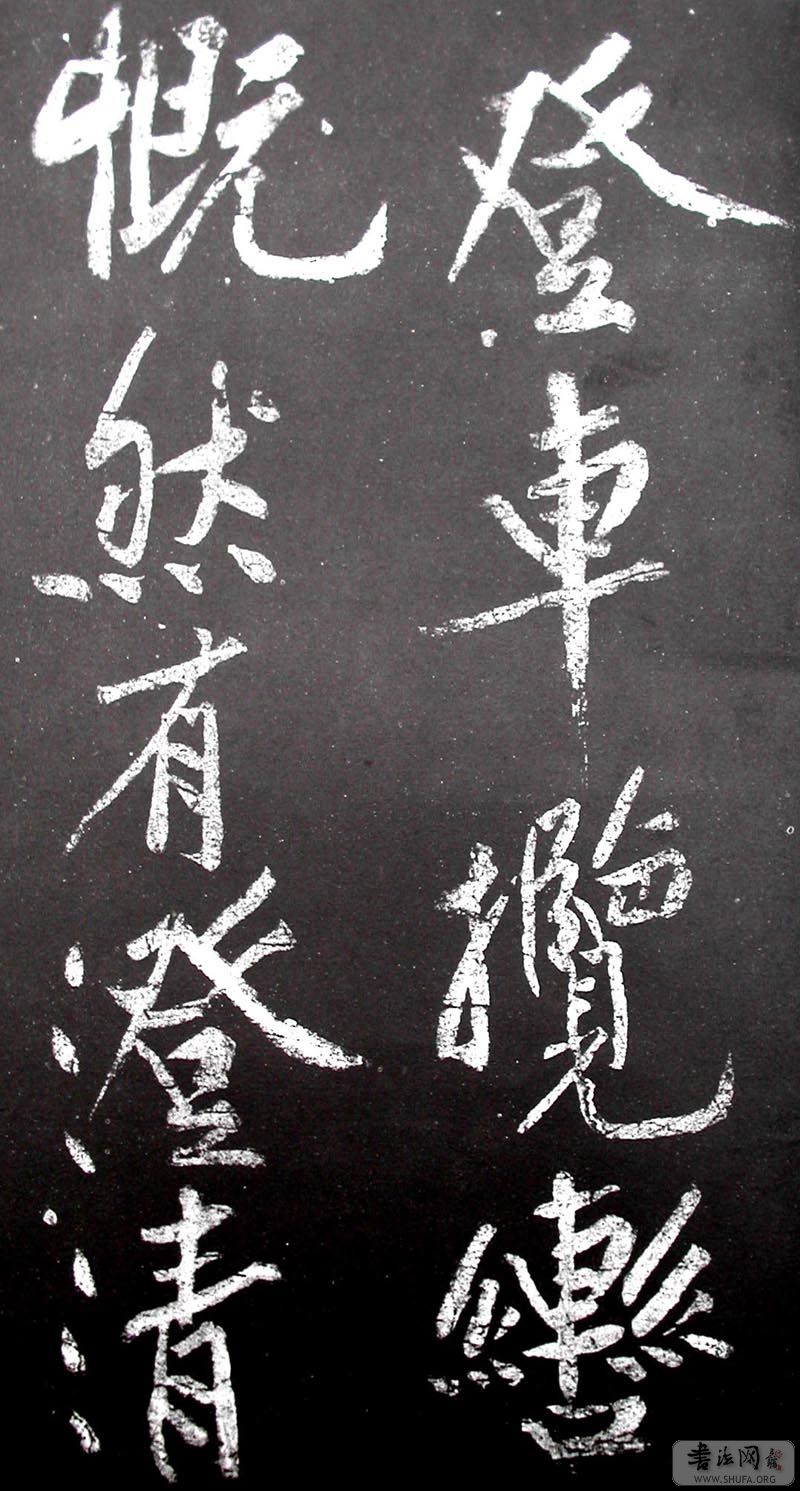 登車攬轡
慨然有澄清
书法网
WWW.SHUFA.ORG